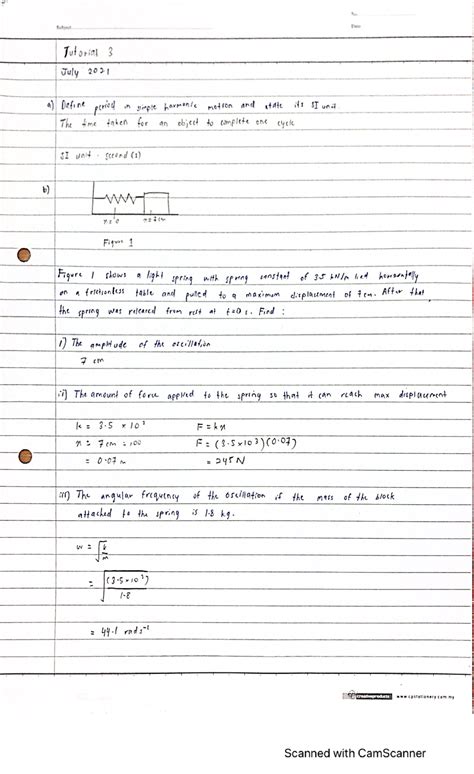 No.
Subject
Date
Tutorial 3
July 2021
a) Define period in simple harmonic motion and state its SI unit.
The time taken for an object to complete one cycle
SI unit - second (s)
b)
x = 0
x = 7cm
Figure 1
Figure 1 shows a light spring with spring constant of 3.5 kN/m tied horizontally
on a frictionless table and pulled to a maximum displacement of 7cm. After that
the spring was released from rest at t=0 s. Find :
i) The amplitude of the oscillation
7 cm
ii) The amount of force applied to the spring so that it can reach max displacement
k = 3.5 x 10³ F = kx
x = 7cm ÷ 100 F = (3.5x10³)(0.07)
= 0.07 m = 245 N
iii) The angular frequency of the oscillation if the mass of the block
attached to the spring is 1.8 kg.
w = √k/m
= √(3.5x10³)/1.8
= 44.1 rads⁻¹
www.cpstationery.com.my
Scanned with CamScanner